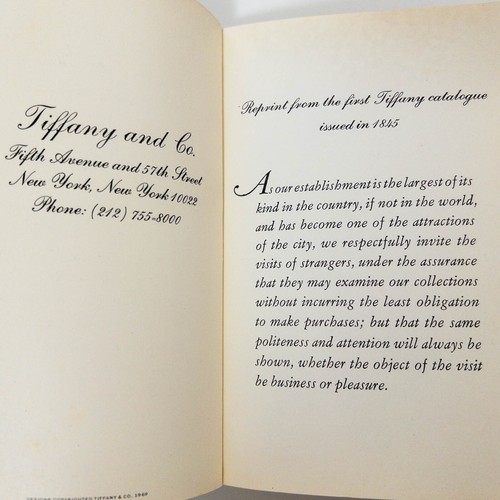 Tiffany and Co.
Fifth Avenue and 57th Street
New York, New York 10022
Phone: (212) 755-8000
COPYRIGHTED TIFFANY & CO.
Reprint from the first Tiffany catalogue
issued in 1845
As our establishment is the largest of its
kind in the country, if not in the world,
and has become one of the attractions
of the city, we respectfully invite the
visits of strangers, under the assurance
that they may examine our collections
without incurring the least obligation
to make purchases; but that the same
politeness and attention will always be
shown, whether the object of the visit
be business or pleasure.